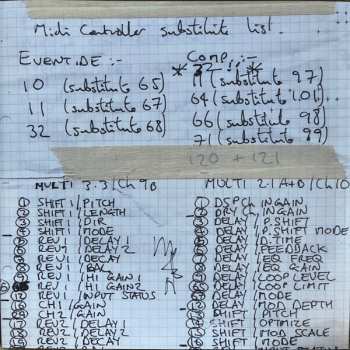 Midi Controller substitute list.
EVENTIDE :-
10 (substitute 65)
11 (substitute 67)
32 (substitute 68)
COMP :-
(substitute 97)
64 (substitute 101)
66 (substitute 98)
71 (substitute 99)
120 + 121
MULTI 3.3/Ch 90
① SHIFT 1 / PITCH
② SHIFT 1 / LENGTH
③ SHIFT 1 / DIR
④ SHIFT / MODE
⑤ REV 1 / DELAY 1
⑥ REV 1 / DELAY 2
REV 1 / DECAY
REV 1 / BAL
REV 1 / HI GAIN 1
REV 1 / HI GAIN 2
REV 1 / INPUT STATUS
CH1 / GAIN
CH2 / GAIN
REV2 / DELAY
REV2 / DELAY 2
REV2 / DECAY
MULTI 2.1 A+B / Ch 10
① DSP CH INGAIN
② DRY CH INGAIN
③ DELAY / P.SHIFT
④ DELAY / P.SHIFT MODE
⑤ DELAY / D.TIME
⑥ DELAY / FEEDBACK
DELAY / EQ FREQ
DELAY / EQ GAIN
DELAY / LOOP LEVEL
DELAY / LOOP LIMIT
DELAY / MODE
DELAY / MOD DEPTH
SHIFT / PITCH
SHIFT / OPTIMIZE
SHIFT / MOD SCALE
SHIFT / MODE